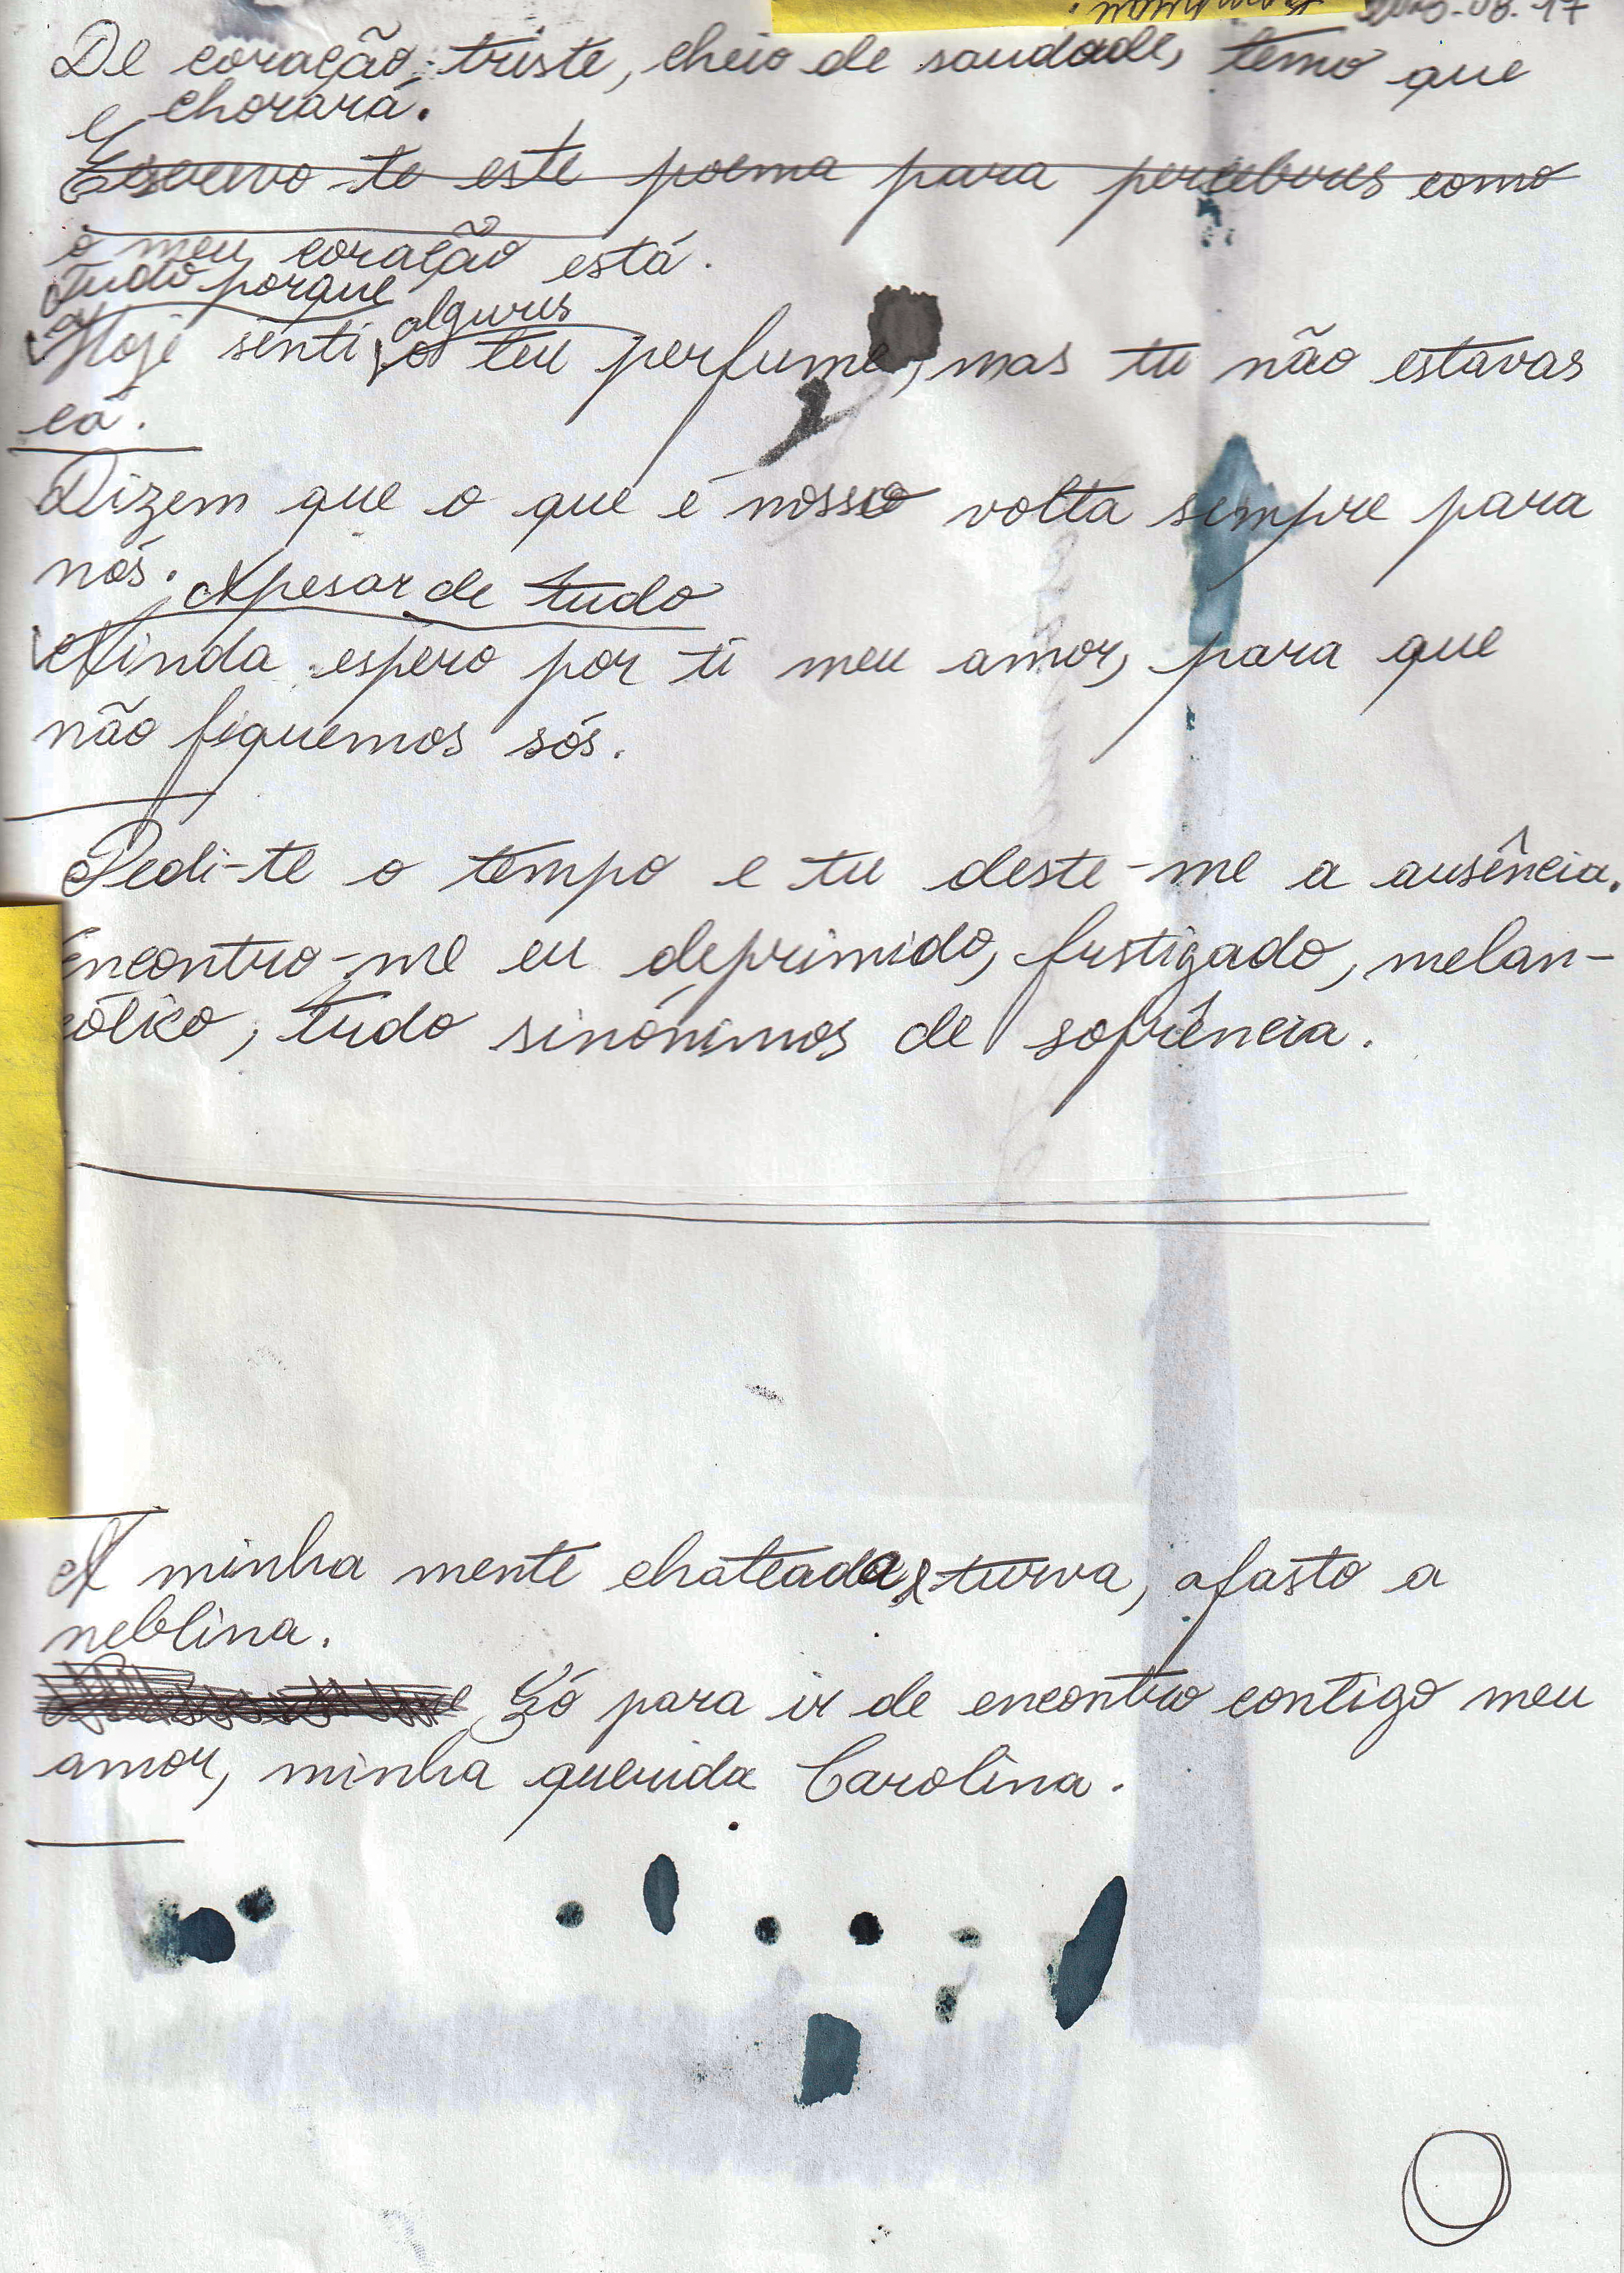 De coração triste, cheio de saudade, temo que
chorará.
Escrevo-te este poema para perceberes como
o meu coração está.
Tudo porque
algures
Hoje senti, o teu perfume, mas tu não estavas
cá.
Dizem que o que é nosso volta sempre para
nós.
Apesar de tudo
Ainda espero por ti meu amor, para que
não fiquemos sós.
Pedi-te o tempo e tu deste-me a ausência.
Encontro-me eu deprimido, fustigado, melan-
cólico, tudo sinónimos de sofrência.
A minha mente chateada e turva, afasto a
neblina.
Só para ir de encontro contigo meu
amor, minha querida Carolina.